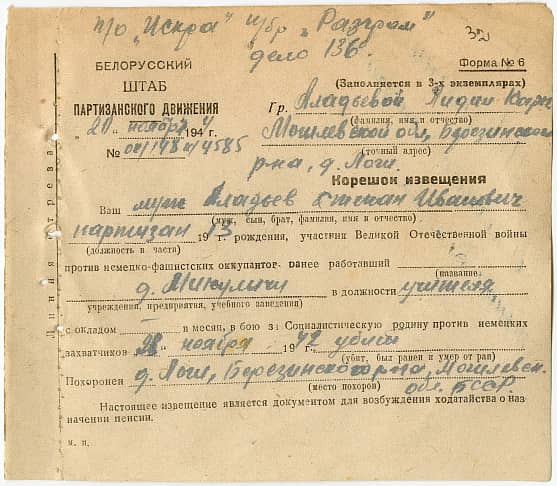 п/о "Искра" п/бр "Разгром"
дело 136.
32
БЕЛОРУССКИЙ
ШТАБ
ПАРТИЗАНСКОГО ДВИЖЕНИЯ
"20" ноября 1944 г.
№ ок/148н/4585
Форма № 6
(Заполняется в 3-х экземплярах)
Гр. Аладьевой Лидии
(фамилия, имя, отчество)
Могилевской обл, Березинского
(точный адрес)
р-на, д. Логи.
Корешок извещения
Ваш муж Аладьев Степан Иванович
(муж, сын, брат, фамилия, имя и отчество)
партизан 1913 г. рождения, участник Великой Отечественной войны
(должность в части)
против немецко-фашистских оккупантов ранее работавший
(название
д. Микуличи в должности учителя
учреждения, предприятия, учебного заведения)
с окладом — в месяц, в бою за Социалистическую родину против немецких
захватчиков "28" ноября 1942 убит
(убит, был ранен и умер от ран)
Похоронен д. Логи, Березинского р-на, Могилевск.
(место похорон) обл. БССР.
Настоящее извещение является документом для возбуждения ходатайства о наз
начении пенсии.
м. п.
Линия отреза